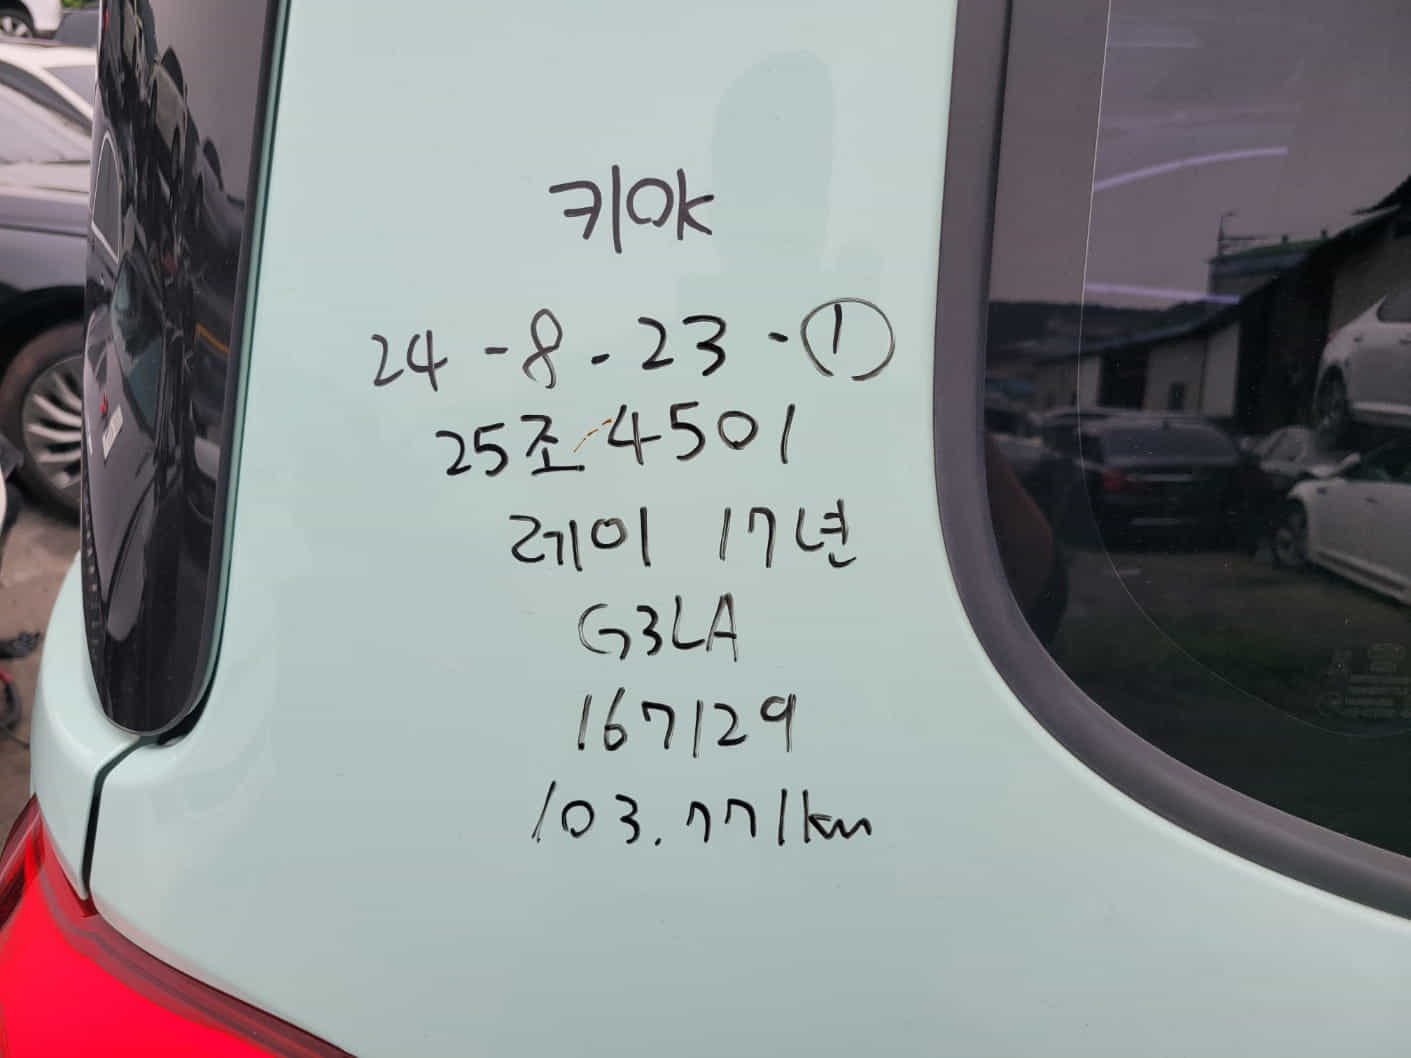 키ok
24-8-23-①
25조4501
레이 17년
G3LA
167129
103.771km